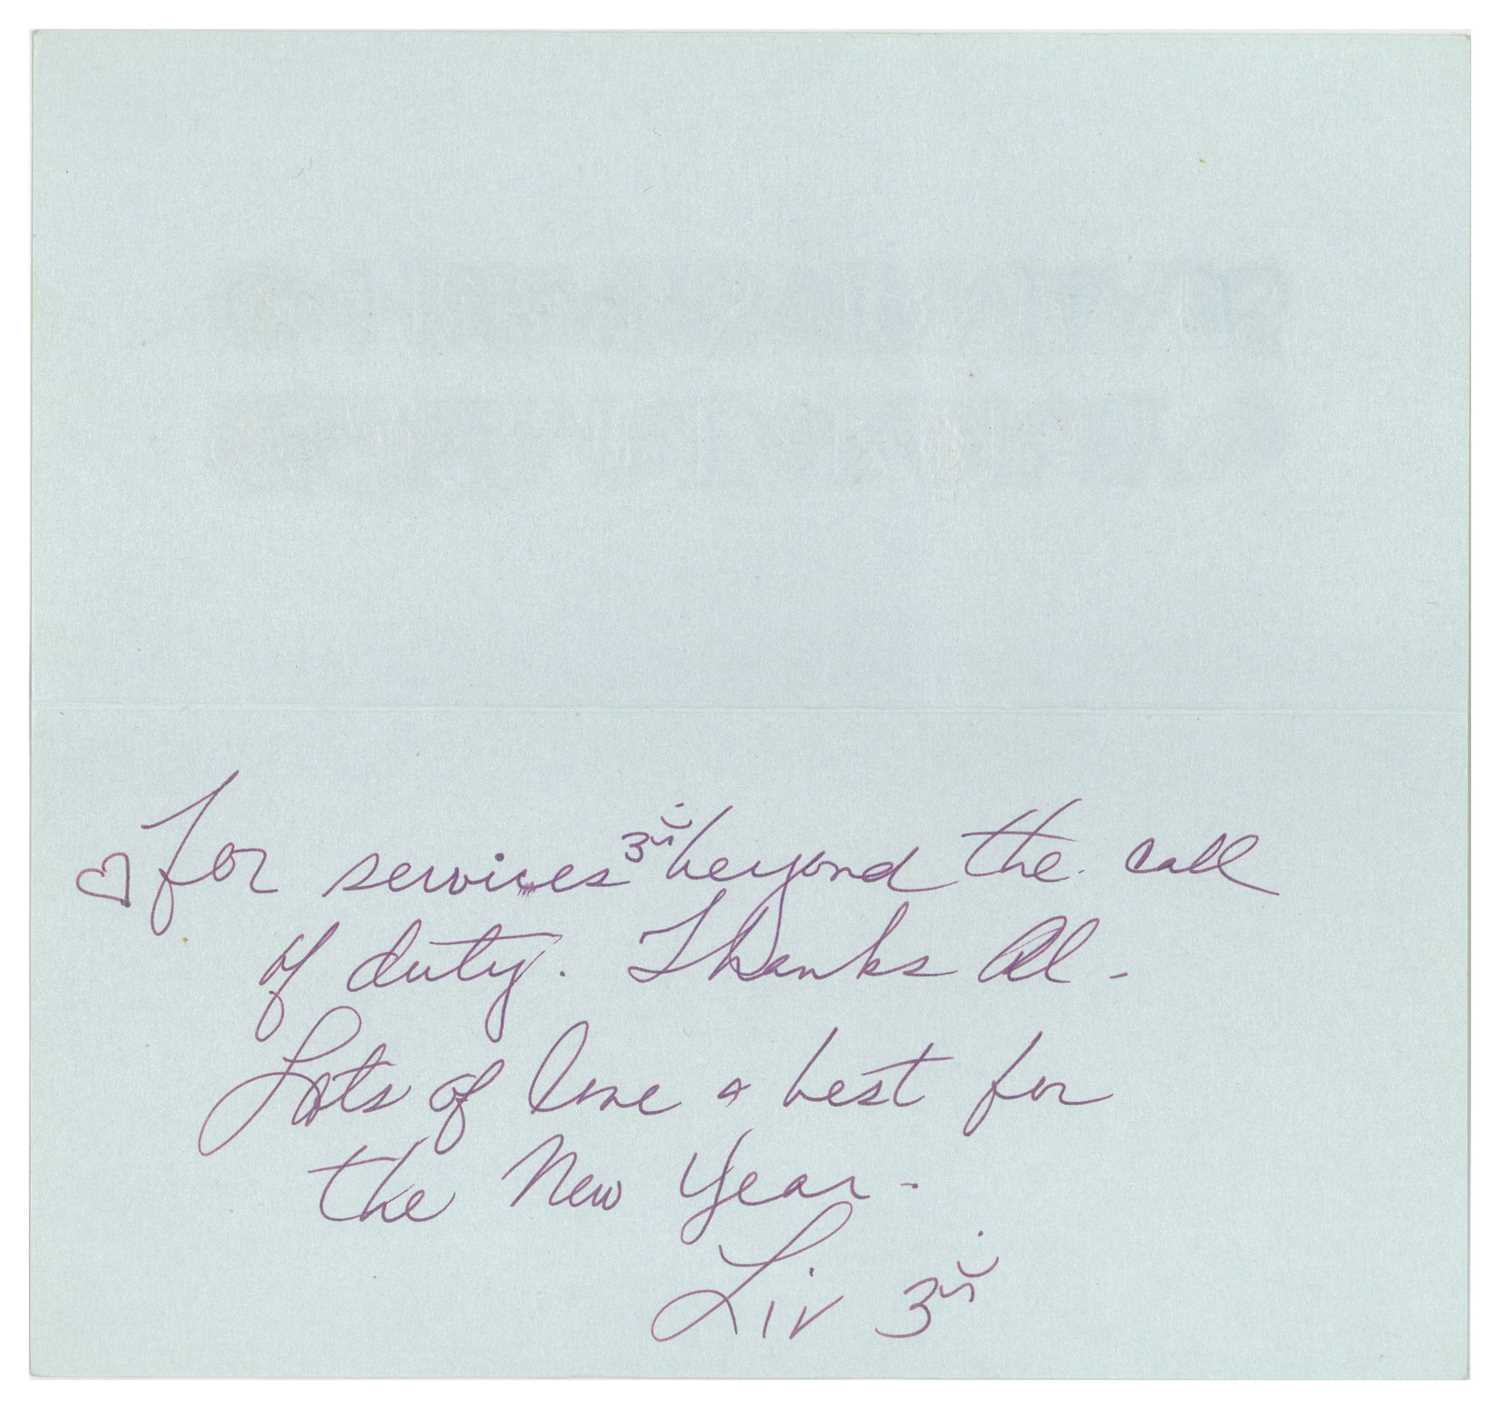 ♡ For services ॐ beyond the call
of duty. Thanks Al -
Lots of love & best for
the New Year -
Liv ॐ